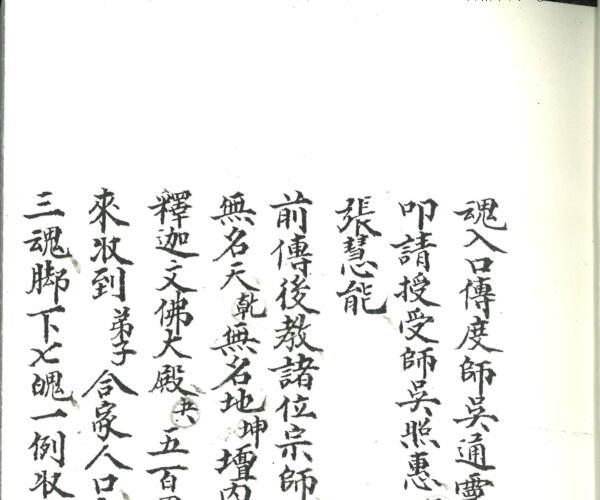 魂入口傳度師吳通靈
叩請授受師吳照惠
張慧能
前傳後教諸位宗師
無名天乾無名地坤壇內
釋迦文佛大殿共五百
來收到弟子合家人口
三魂脚下七魄一例收